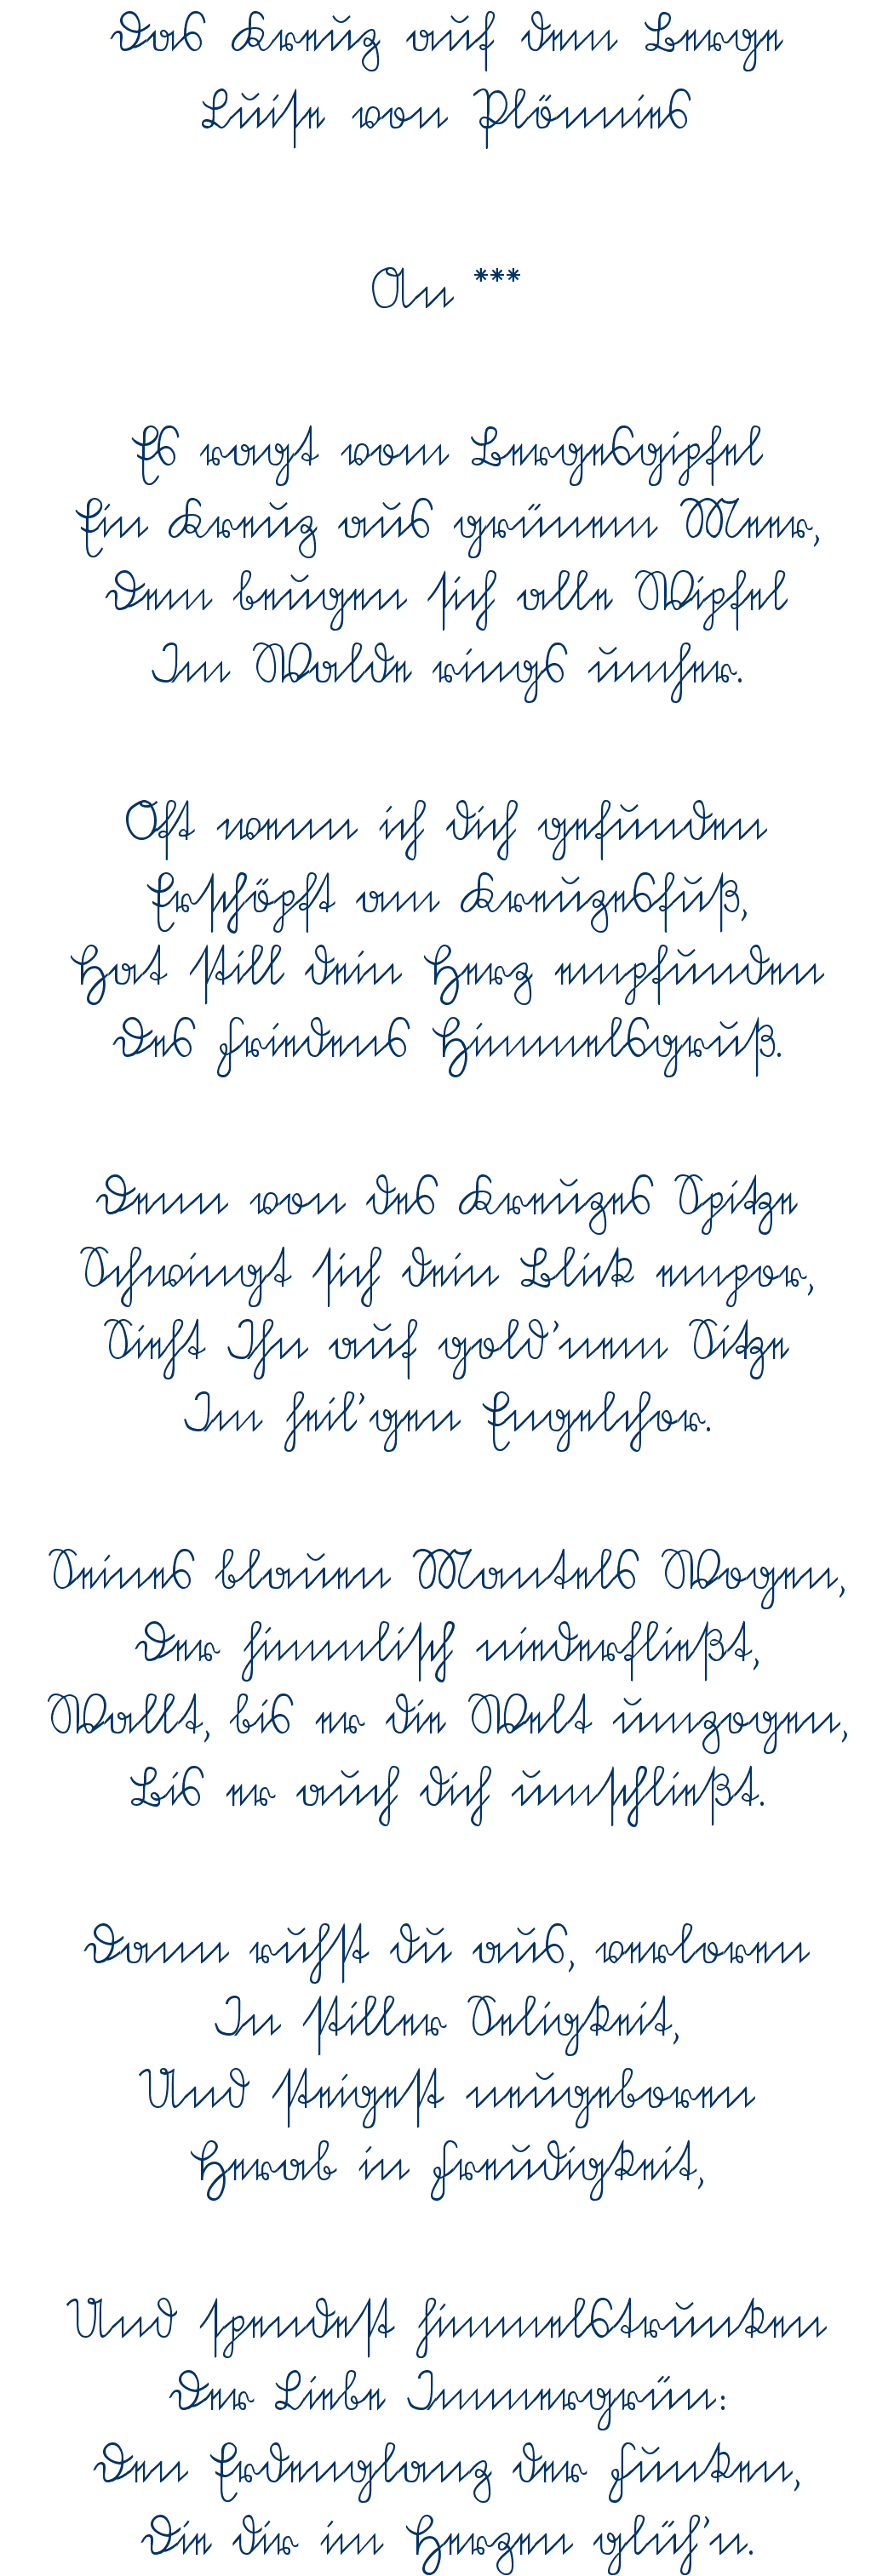 Das Kreuz auf dem Berge
Luise von Plönnies
An ***
Es ragt vom Bergesgipfel
Ein Kreuz aus grünem Meer,
Dem beugen sich alle Wipfel
Im Walde rings umher.
Oft wenn ich dich gefunden
Erschöpft am Kreuzesfuß,
Hat still dein Herz empfunden
Des Friedens Himmelsgruß.
Denn von des Kreuzes Spitze
Schwingt sich dein Blick empor,
Sieht Ihn auf gold'nem Sitze
Im heil'gen Engelchor.
Seines blauen Mantels Wogen,
Der himmlisch niederfließt,
Wallt, bis er die Welt umzogen,
Bis er auch dich umschließt.
Dann ruhst du aus, verloren
In stiller Seligkeit,
Und steigest neugeboren
Herab in Freudigkeit,
Und spendest himmelstrunken
Der Liebe Immergrün:
Den Erdenglanz der Funken,
Die dir im Herzen glüh'n.